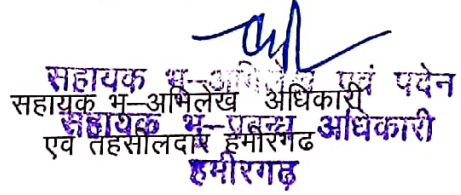 सहायक भू-अभिलेख एवं पदेन
सहायक भू-अभिलेख अधिकारी
सहायक भू-प्रबन्ध अधिकारी
एवं तहसीलदार हमीरगढ
हमीरगढ़